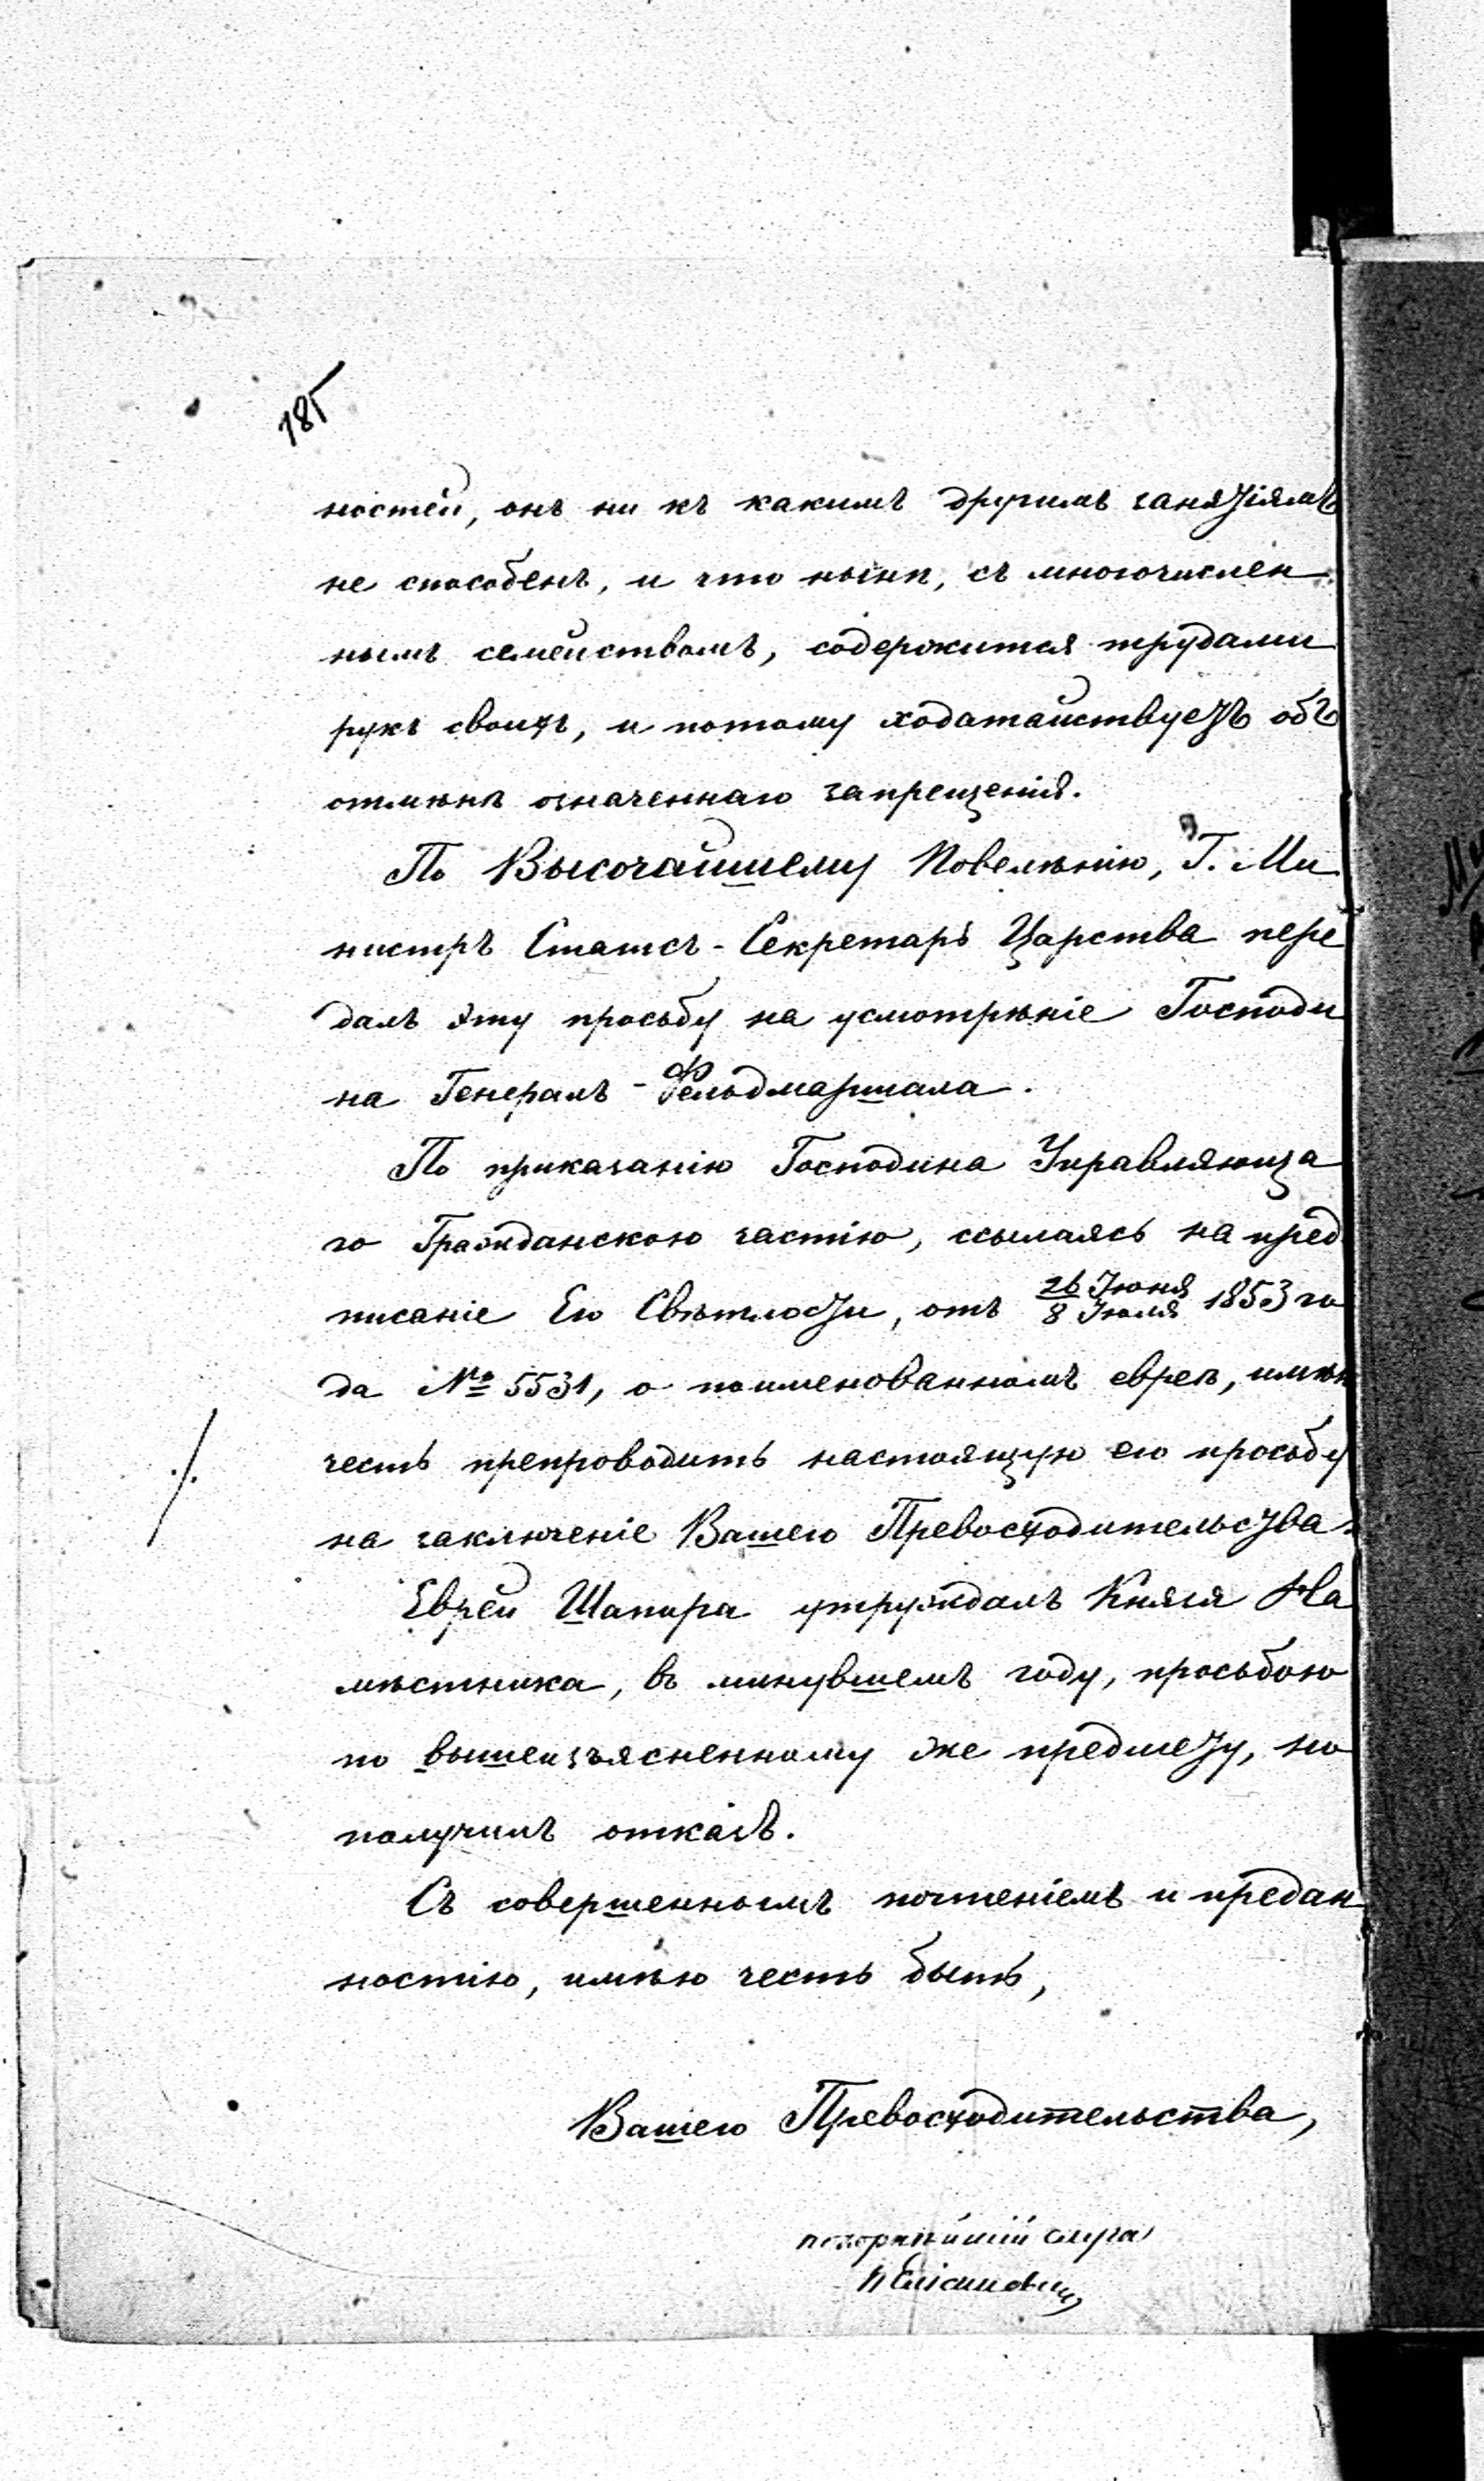 185
ностей, онъ ни къ какимъ другимъ занятіямъ
не способенъ, и что нынѣ, съ многочислен
нымъ семействомъ, содержится трудами
рукъ своихъ, и потому ходатайствуетъ объ
отмѣнѣ означеннаго запрещенія.
По Высочайшему Повелѣнію, Г. Ми
нистръ Статсъ-Секретарь Царства пере
далъ эту просьбу на усмотрѣніе Господи
на Генералъ-Фельдмаршала.
По приказанію Господина Управляюща
го Гражданскою частію, ссылаясь на пред
писаніе Его Свѣтлости, отъ 26 Іюня/8 Іюля 1853 го
да № 5531, о поименованномъ евреѣ, имѣю
честь препроводить настоящую его просьбу
на заключеніе Вашего Превосходительства.
Еврей Шапира утруждалъ Князя На
мѣстника, въ минувшемъ году, просьбою
по вышеизъясненному же предмету, но
получилъ отказъ.
Съ совершеннымъ почтеніемъ и предан
ностію, имѣю честь быть,
Вашего Превосходительства,
покорнѣйшій слуга